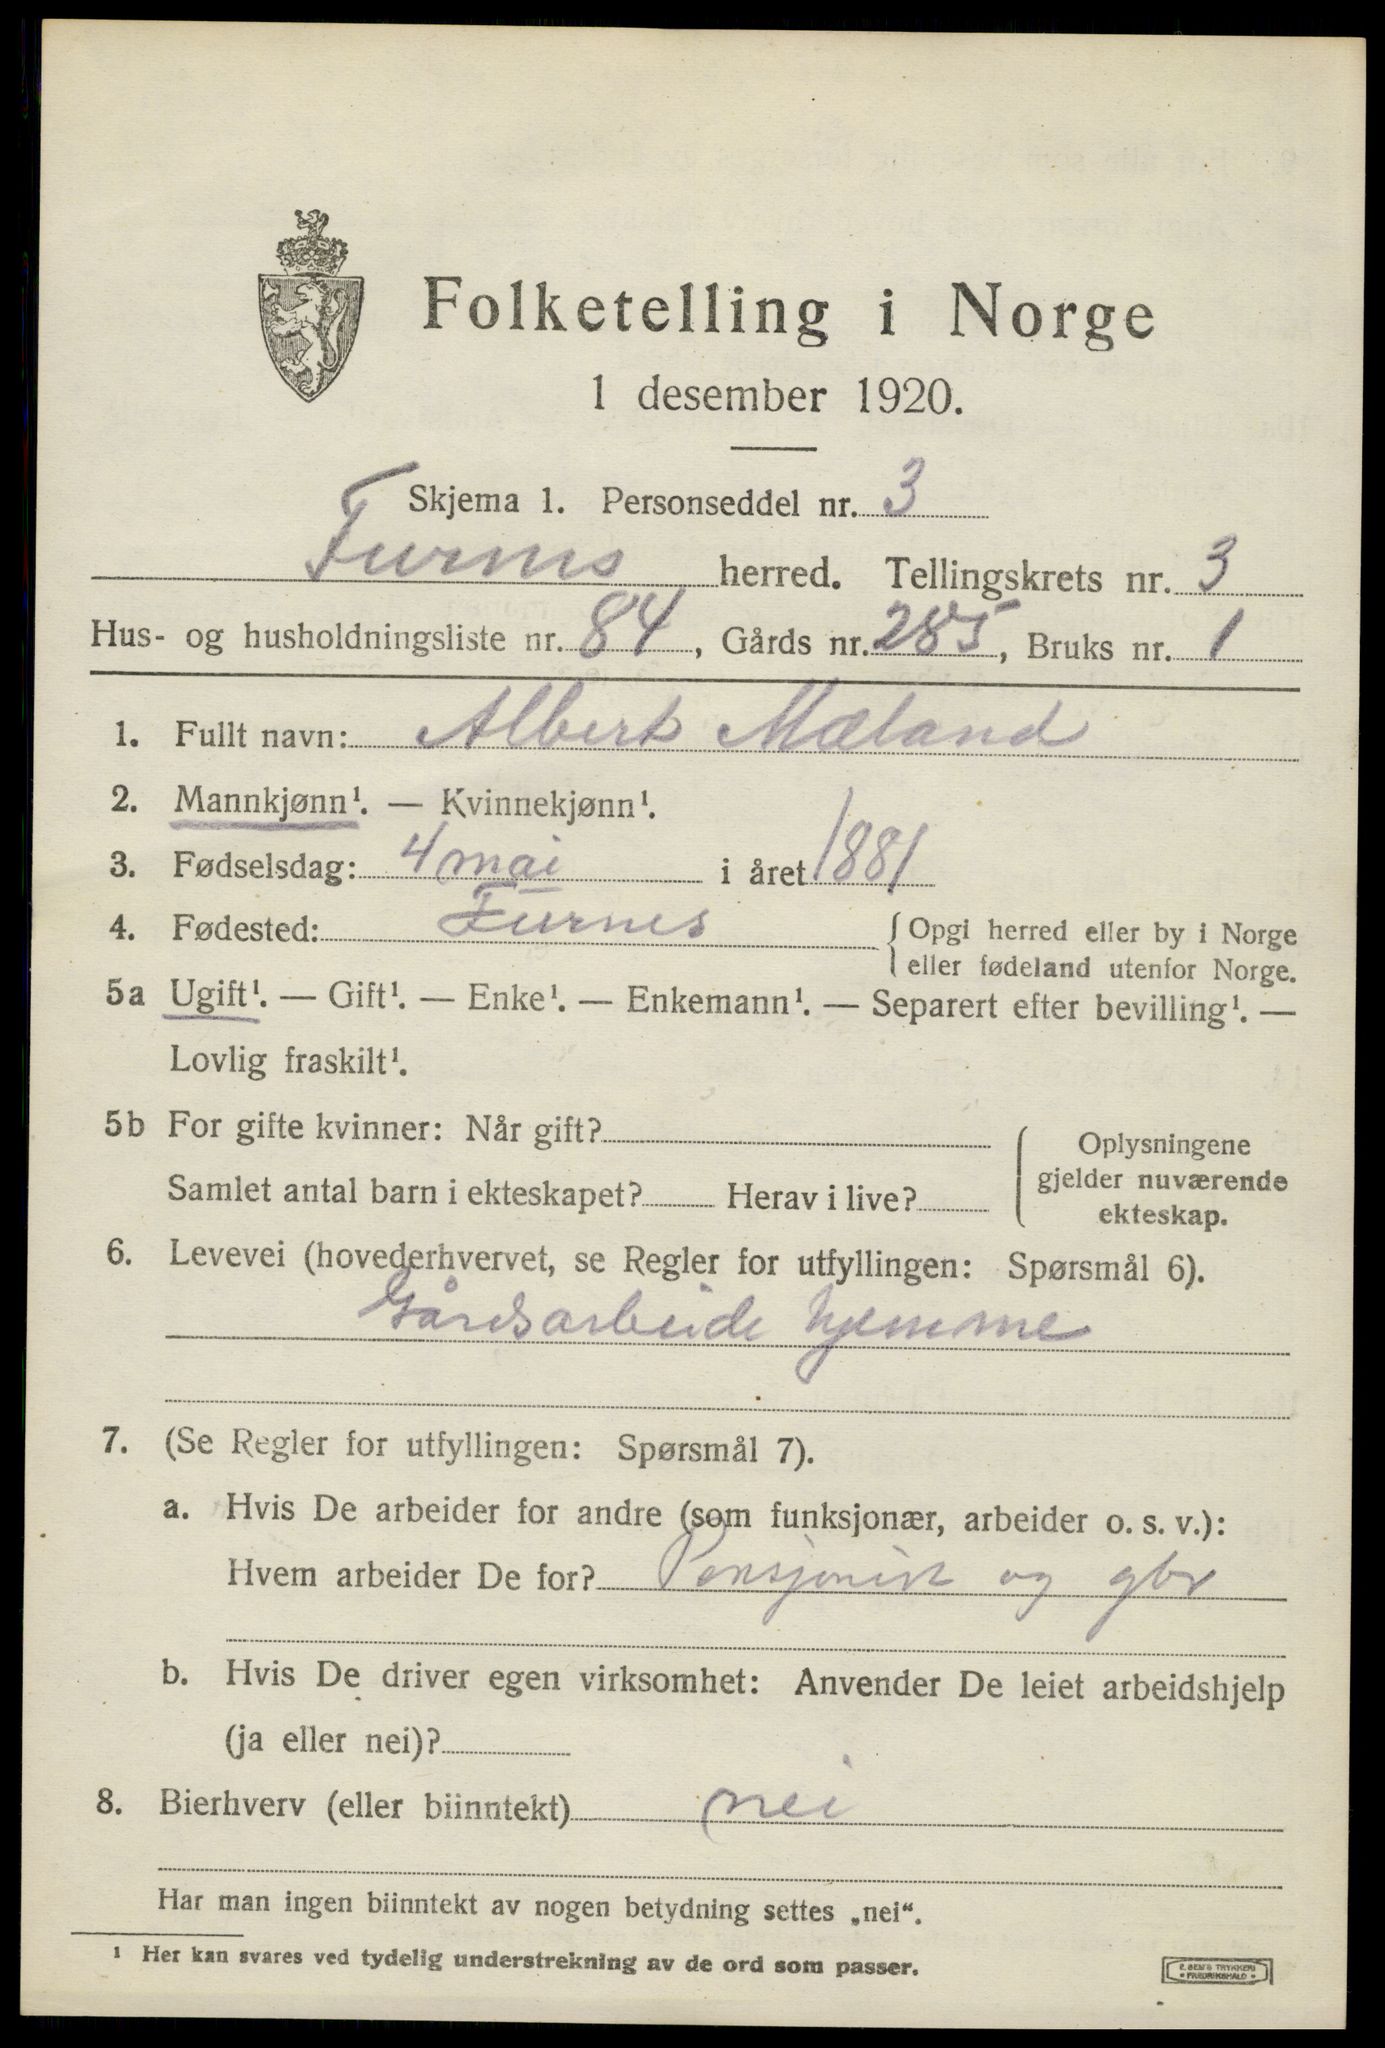 Folketelling i Norge
1 desember 1920.
Skjema 1. Personseddel nr. 3
Furnes herred. Tellingskrets nr. 3
Hus- og husholdningsliste nr. 84, Gårds nr. 285, Bruks nr. 1
1. Fullt navn: Albert Mæland
2. Mannkjønn¹. — Kvinnekjønn¹.
3. Fødselsdag: 4 mai i året 1881
4. Fødested: Furnes { Opgi herred eller by i Norge
eller fødeland utenfor Norge.
5a Ugift¹. — Gift¹. — Enke¹. — Enkemann¹. — Separert efter bevilling¹. —
Lovlig fraskilt¹.
5b For gifte kvinner: Når gift?
Samlet antal barn i ekteskapet? Herav i live?
Oplysningene
gjelder nuværende
ekteskap.
6. Levevei (hovederhvervet, se Regler for utfyllingen: Spørsmål 6).
Gårdsarbeide hjemme
7. (Se Regler for utfyllingen: Spørsmål 7).
a. Hvis De arbeider for andre (som funksjonær, arbeider o. s. v.):
Hvem arbeider De for? Pensjonist og gbr
b. Hvis De driver egen virksomhet: Anvender De leiet arbeidshjelp
(ja eller nei)?
8. Bierhverv (eller biinntekt) nei
Har man ingen biinntekt av nogen betydning settes „nei".
¹ Her kan svares ved tydelig understrekning av de ord som passer.
E. SEM'S TRYKKERI
• FREDRIKSHALD •